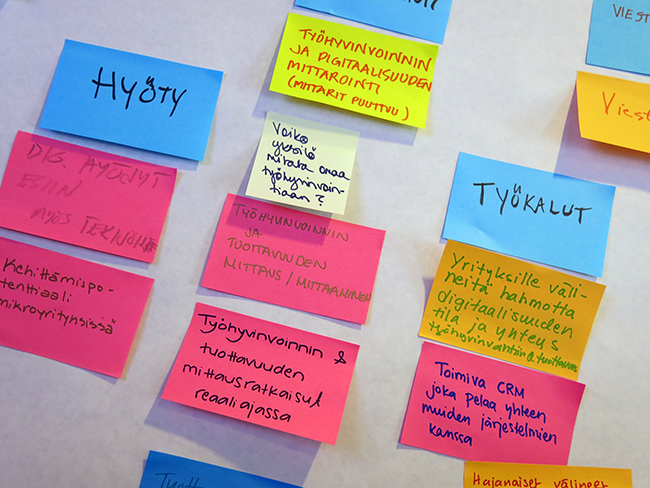 HYÖTY
DIG. HYÖDYT
ESIIN
MYÖS TEKNOL
Kehittämispo-
tenttiaali
mikroyrityksissä"
TYÖHYVINVOINNIN
JA DIGITAALISUUDEN
MITTAROINTI
(MITTARIT PUUTTUU)
Voiko
yksilö
mitata omaa
työhyvinvoin-
tiaan?
TYÖHYVINVOINNIN
JA
TUOTTAVUUDEN
MITTAUS / MITTAAMINEN
Työhyvinvoinnin &
tuottavuuden
mittausratkaisut
reaaliajassa
VIEST
Viest
TYÖKALUT
Yrityksille väli-
neitä hahmottaa
digitaalisuuden
tila ja yhteys
työhyvinvointiin & tuottavuu
Toimiva CRM
joka pelaa yhteen
muiden järjestelmien
kanssa
Hajanaiset välineet